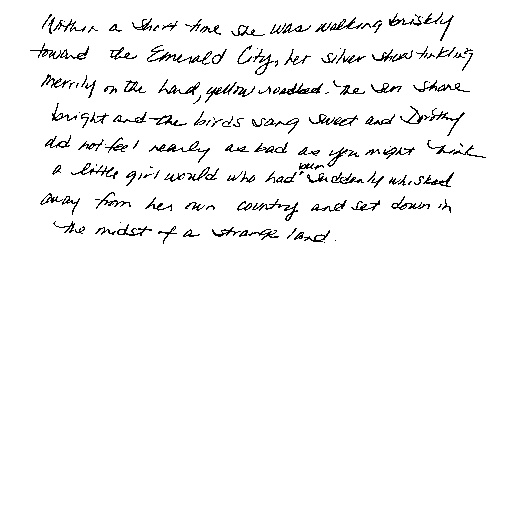 Within a short time she was walking briskly
toward the Emerald City, her silver shoes tinkling
merrily on the hard, yellow roadbed. The sun shone
bright and the birds sang sweet and Dorothy
did not feel nearly as bad as you might think
a little girl would who had been suddenly whisked
away from her own country and set down in
the midst of a strange land.